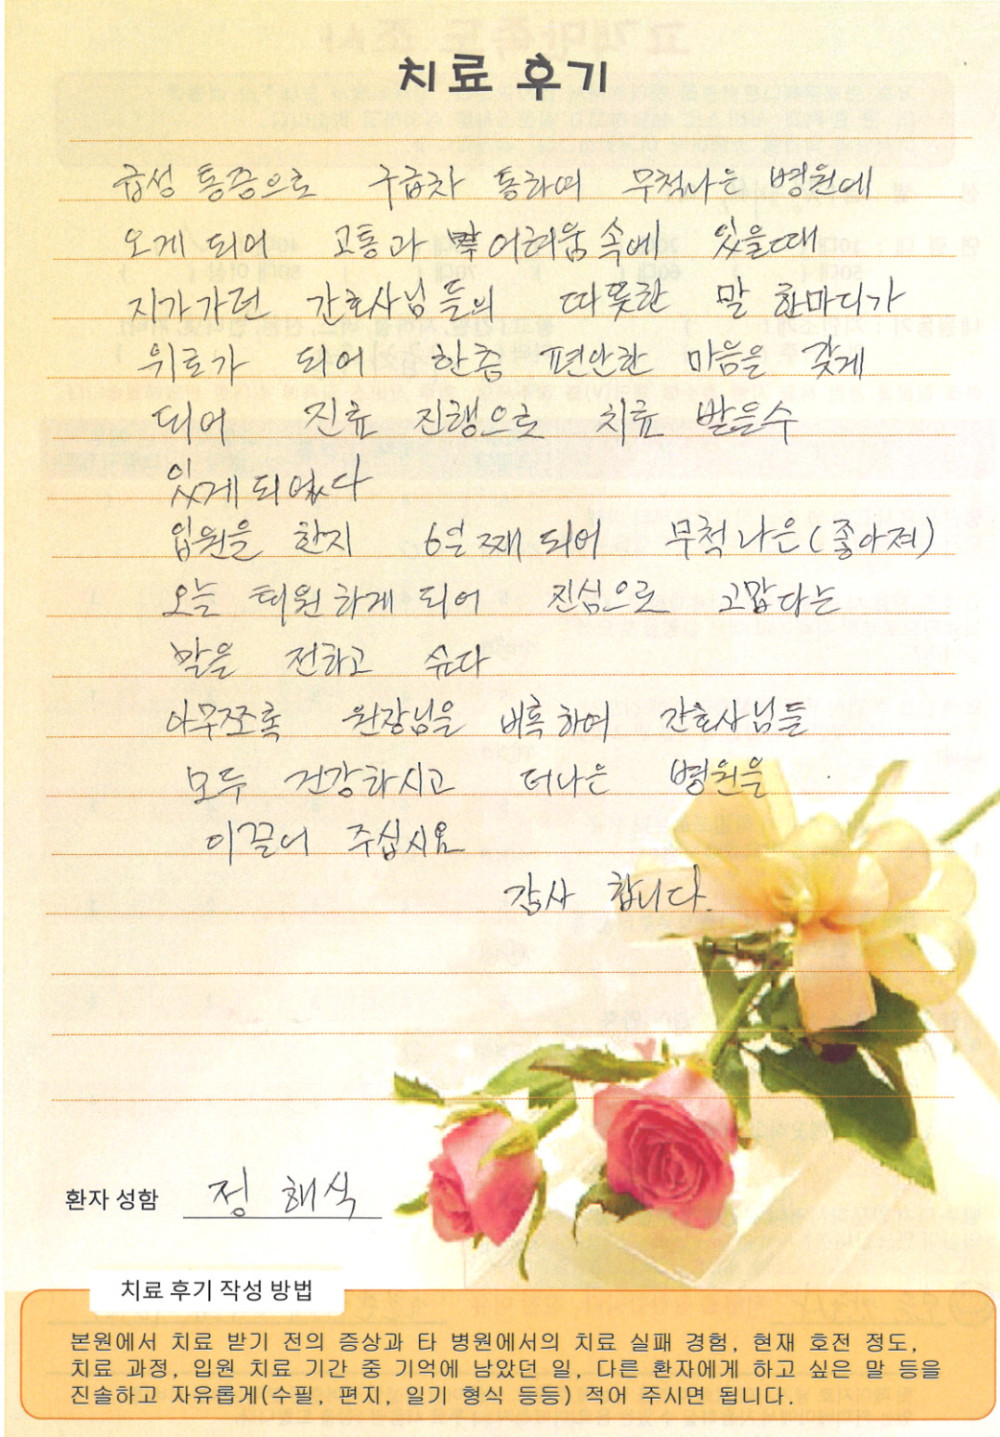 치료 후기
급성 통증으로 구급차 통하여 무척나은 병원에
오게 되어 고통과 어려움 속에 있을때
지가가던 간호사님들의 따뜻한 말 한마디가
위로가 되어 한층 편안한 마음을 갖게
되어 진료 진행으로 치료 받을수
있게 되었다
입원을 한지 6일째 되어 무척 나은(좋아져)
오늘 퇴원하게 되어 진심으로 고맙다는
말을 전하고 싶다
아무쪼록 원장님을 비롯하여 간호사님들
모두 건강하시고 더나은 병원을
이끌어 주십시요
감사 합니다.
환자 성함 정 해식
치료 후기 작성 방법
본원에서 치료 받기 전의 증상과 타 병원에서의 치료 실패 경험, 현재 호전 정도,
치료 과정, 입원 치료 기간 중 기억에 남았던 일, 다른 환자에게 하고 싶은 말 등을
진솔하고 자유롭게(수필, 편지, 일기 형식 등등) 적어 주시면 됩니다.